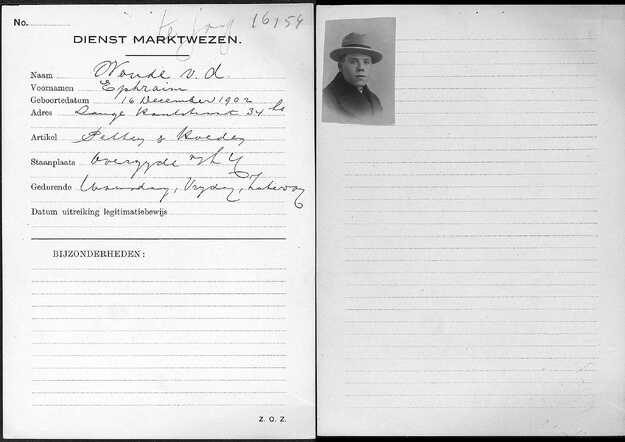 No. 16154
DIENST MARKTWEZEN.
Naam Woude v. d.
Voornamen Ephraim
Geboortedatum 16 December 1902
Adres Lange Houtstraat 34 hs
Artikel Petten & Hoeden
Staanplaats Overzyde
Gedurende Woensdag, Vrydag, Zaterdag
Datum uitreiking legitimatiebewijs
BIJZONDERHEDEN:
Z. O. Z.